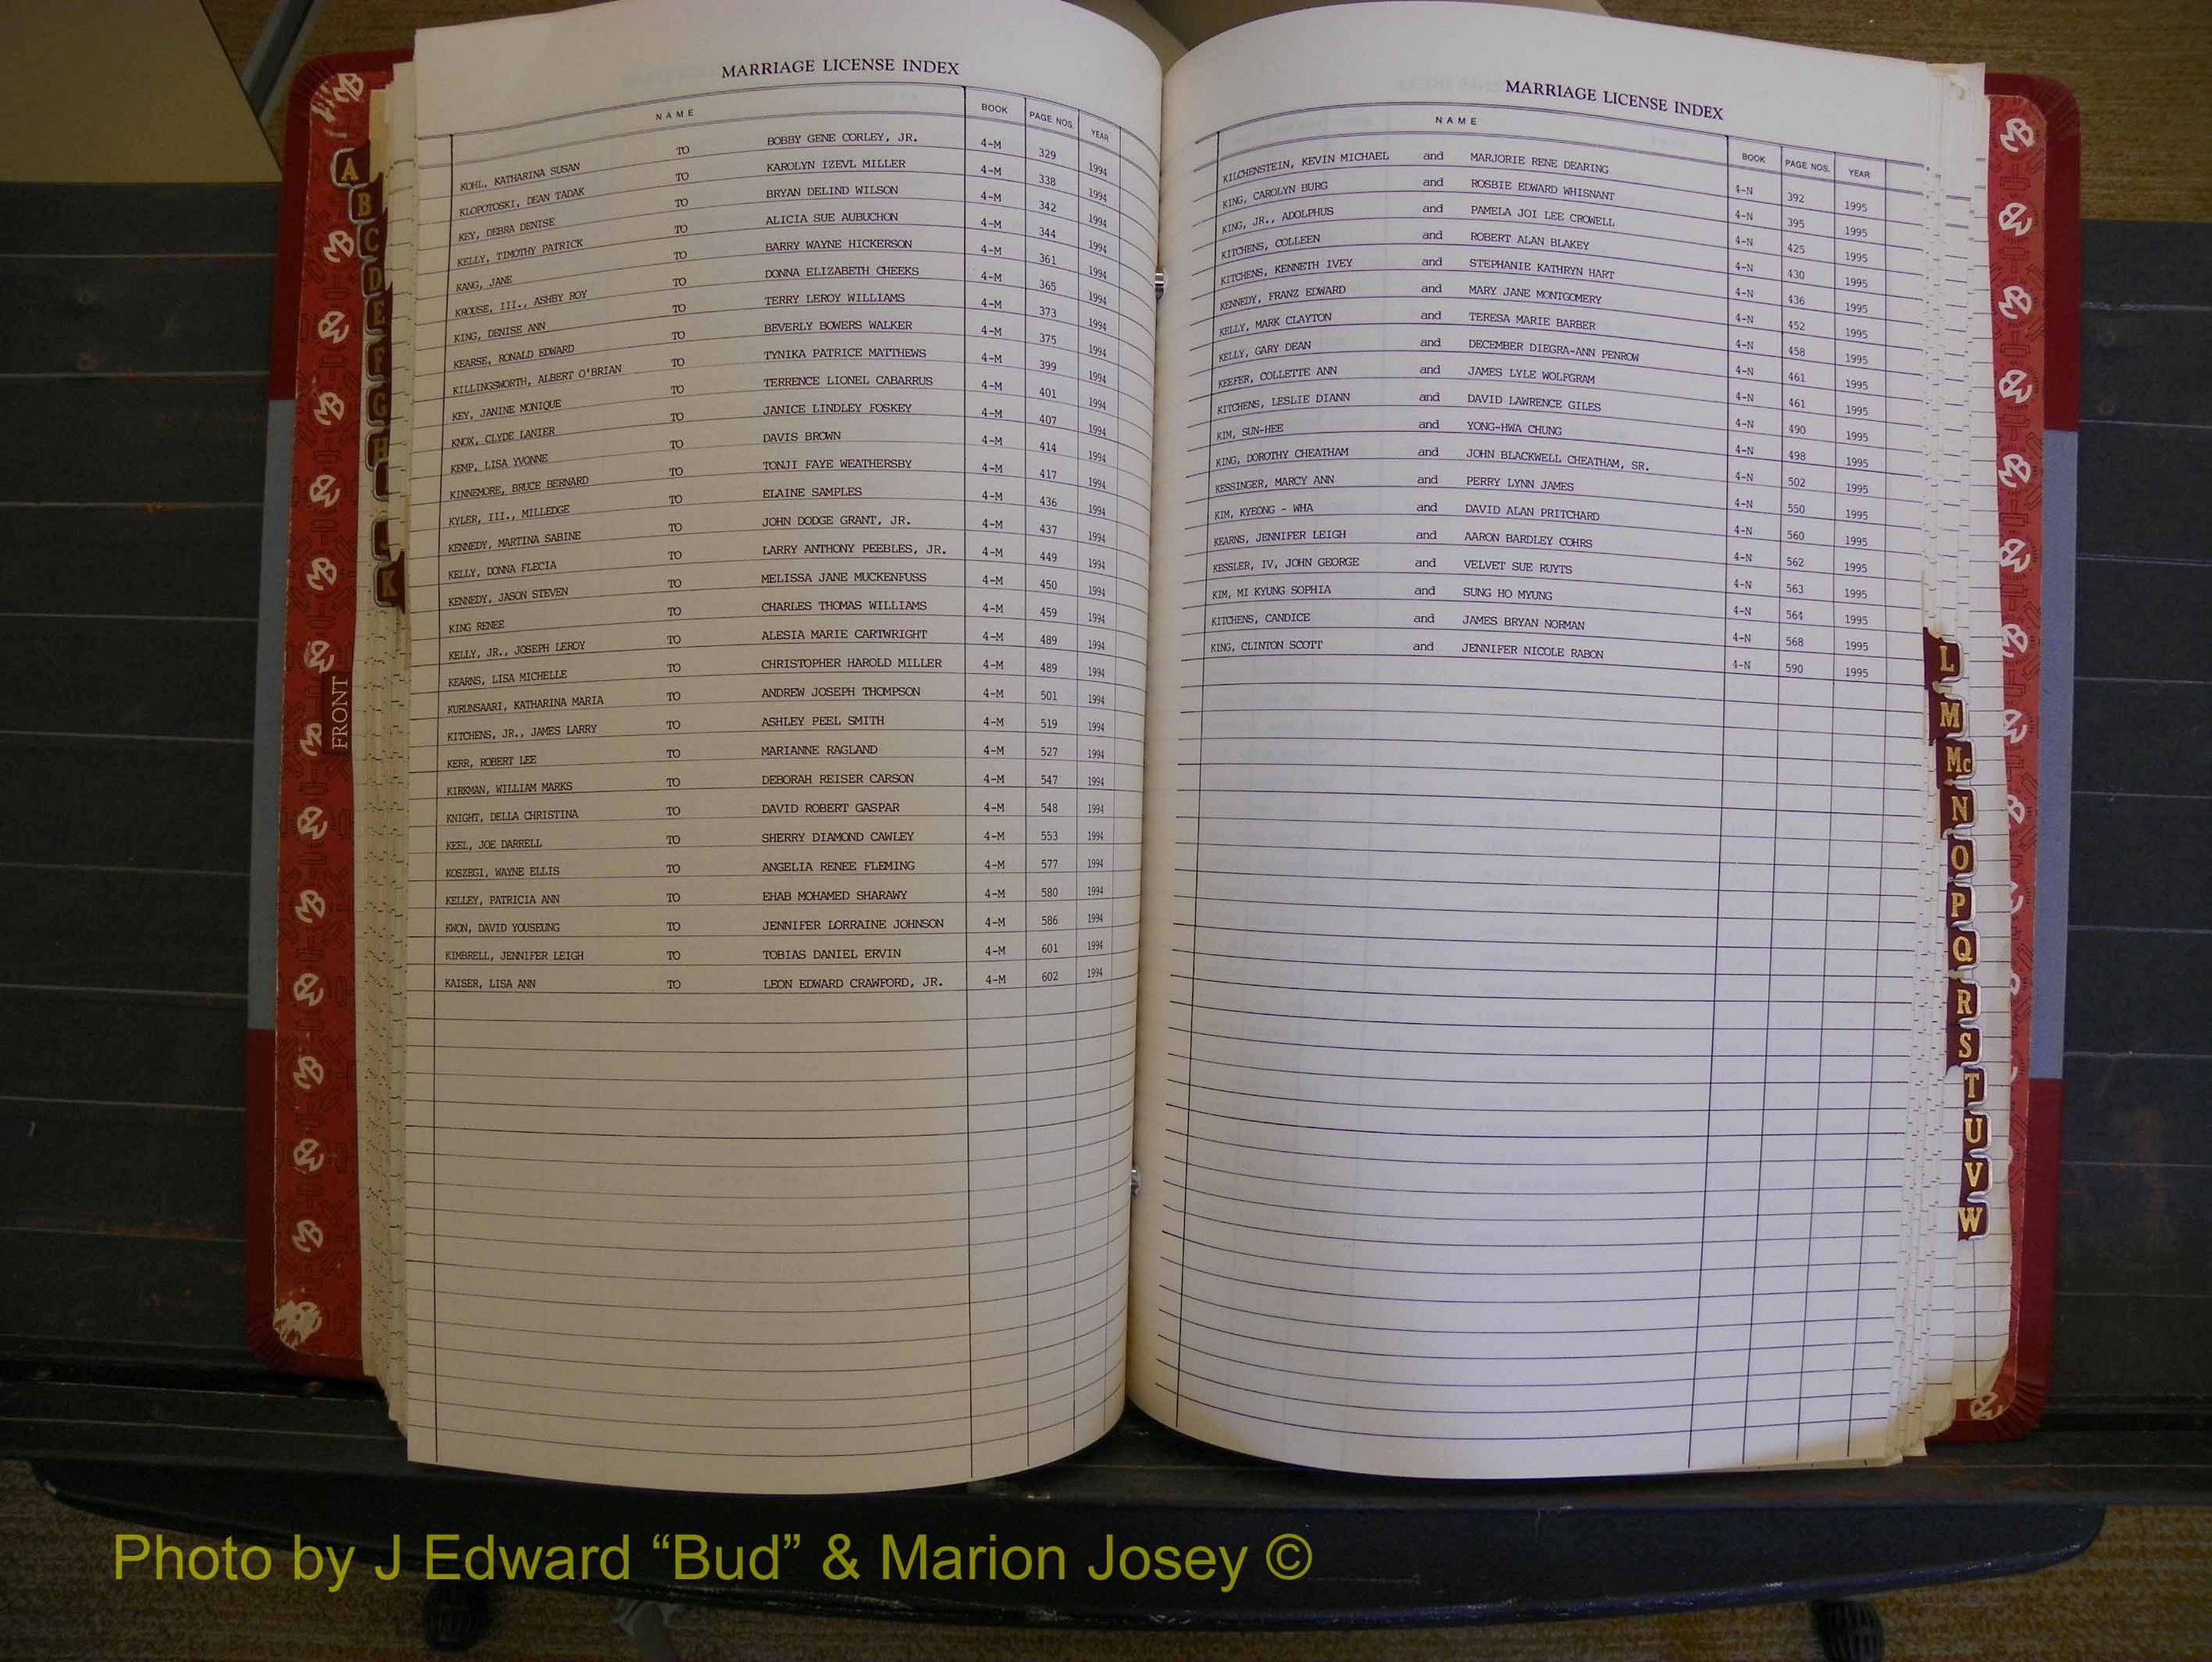 MARRIAGE LICENSE INDEX
NAME BOOK PAGE NOS. YEAR
KOHL, KATHARINA SUSAN TO BOBBY GENE CORLEY, JR. 4-M 329 1994
KLOPOTOSKI, DEAN TADAK TO KAROLYN IZEVL MILLER 4-M 338 1994
KEY, DEBRA DENISE TO BRYAN DELIND WILSON 4-M 342 1994
KELLY, TIMOTHY PATRICK TO ALICIA SUE AUBUCHON 4-M 344 1994
KANG, JANE TO BARRY WAYNE HICKERSON 4-M 361 1994
KROUSE, III., ASHBY ROY TO DONNA ELIZABETH CHEEKS 4-M 365 1994
KING, DENISE ANN TO TERRY LEROY WILLIAMS 4-M 373 1994
KEARSE, RONALD EDWARD TO BEVERLY BOWERS WALKER 4-M 375 1994
KILLINGSWORTH, ALBERT O'BRIAN TO TYNIKA PATRICE MATTHEWS 4-M 399 1994
KEY, JANINE MONIQUE TO TERRENCE LIONEL CABARRUS 4-M 401 1994
KNOX, CLYDE LANIER TO JANICE LINDLEY FOSKEY 4-M 407 1994
KEMP, LISA YVONNE TO DAVIS BROWN 4-M 414 1994
KINNEMORE, BRUCE BERNARD TO TONJI FAYE WEATHERSBY 4-M 417 1994
KYLER, III., MILLEDGE TO ELAINE SAMPLES 4-M 436 1994
KENNEDY, MARTINA SABINE TO JOHN DODGE GRANT, JR. 4-M 437 1994
KELLY, DONNA FLECIA TO LARRY ANTHONY PEEBLES, JR. 4-M 449 1994
KENNEDY, JASON STEVEN TO MELISSA JANE MUCKENFUSS 4-M 450 1994
KING RENEE TO CHARLES THOMAS WILLIAMS 4-M 459 1994
KELLY, JR., JOSEPH LEROY TO ALESIA MARIE CARTWRIGHT 4-M 489 1994
KEARNS, LISA MICHELLE TO CHRISTOPHER HAROLD MILLER 4-M 489 1994
KURUNSAARI, KATHARINA MARIA TO ANDREW JOSEPH THOMPSON 4-M 501 1994
KITCHENS, JR., JAMES LARRY TO ASHLEY PEEL SMITH 4-M 519 1994
KERR, ROBERT LEE TO MARIANNE RAGLAND 4-M 527 1994
KIRKMAN, WILLIAM MARKS TO DEBORAH REISER CARSON 4-M 547 1994
KNIGHT, DELLA CHRISTINA TO DAVID ROBERT GASPAR 4-M 548 1994
KEEL, JOE DARRELL TO SHERRY DIAMOND CAWLEY 4-M 553 1994
KOSZEGI, WAYNE ELLIS TO ANGELIA RENEE FLEMING 4-M 577 1994
KELLEY, PATRICIA ANN TO EHAB MOHAMED SHARAWY 4-M 580 1994
KWON, DAVID YOUSEUNG TO JENNIFER LORRAINE JOHNSON 4-M 586 1994
KIMBRELL, JENNIFER LEIGH TO TOBIAS DANIEL ERVIN 4-M 601 1994
KAISER, LISA ANN TO LEON EDWARD CRAWFORD, JR. 4-M 602 1994
MARRIAGE LICENSE INDEX
NAME BOOK PAGE NOS. YEAR
KILCHENSTEIN, KEVIN MICHAEL and MARJORIE RENE DEARING 4-N 392 1995
KING, CAROLYN BURG and ROSBIE EDWARD WHISNANT 4-N 395 1995
KING, JR., ADOLPHUS and PAMELA JOI LEE CROWELL 4-N 425 1995
KITCHENS, COLLEEN and ROBERT ALAN BLAKEY 4-N 430 1995
KITCHENS, KENNETH IVEY and STEPHANIE KATHRYN HART 4-N 436 1995
KENNEDY, FRANZ EDWARD and MARY JANE MONTGOMERY 4-N 452 1995
KELLY, MARK CLAYTON and TERESA MARIE BARBER 4-N 458 1995
KELLY, GARY DEAN and DECEMBER DIEGRA-ANN PENROW 4-N 461 1995
KEEFER, COLLETTE ANN and JAMES LYLE WOLFGRAM 4-N 461 1995
KITCHENS, LESLIE DIANN and DAVID LAWRENCE GILES 4-N 490 1995
KIM, SUN-HEE and YONG-HWA CHUNG 4-N 498 1995
KING, DOROTHY CHEATHAM and JOHN BLACKWELL CHEATHAM, SR. 4-N 502 1995
KESSINGER, MARCY ANN and PERRY LYNN JAMES 4-N 550 1995
KIM, KYEONG - WHA and DAVID ALAN PRITCHARD 4-N 560 1995
KEARNS, JENNIFER LEIGH and AARON BARDLEY COHRS 4-N 562 1995
KESSLER, IV, JOHN GEORGE and VELVET SUE RUYTS 4-N 563 1995
KIM, MI KYUNG SOPHIA and SUNG HO MYUNG 4-N 564 1995
KITCHENS, CANDICE and JAMES BRYAN NORMAN 4-N 568 1995
KING, CLINTON SCOTT and JENNIFER NICOLE RABON 4-N 590 1995
A
B
C
D
E
F
G
H
K
FRONT
L
M
Mc
N
O
P
Q
R
S
T
U
V
W
Photo by J Edward “Bud” & Marion Josey ©